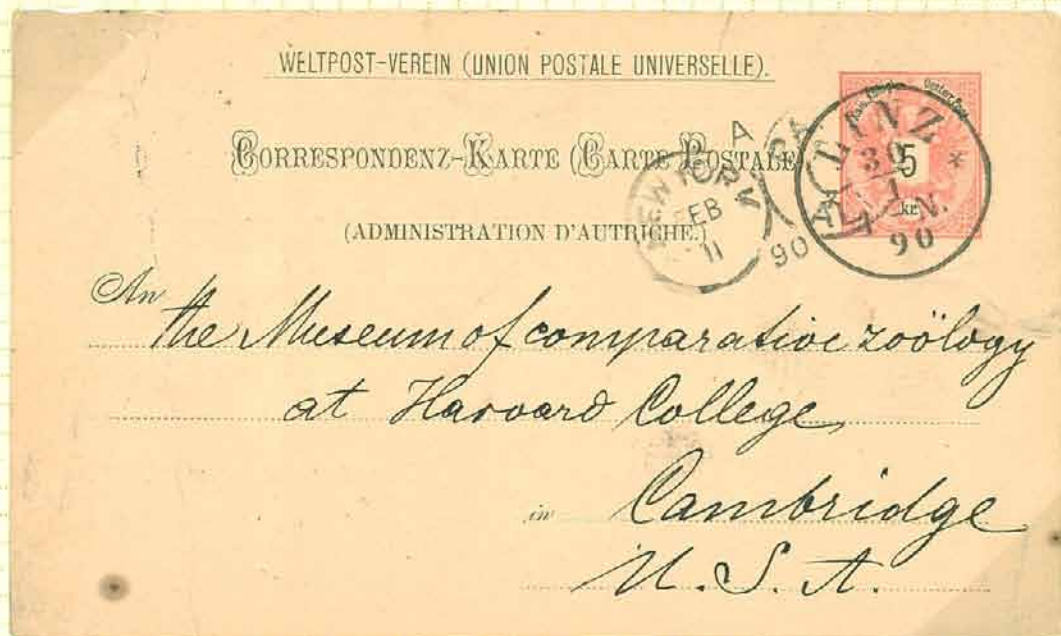 WELTPOST-VEREIN (UNION POSTALE UNIVERSELLE).
CORRESPONDENZ-KARTE (CARTE POSTALE)
(ADMINISTRATION D'AUTRICHE.)
NEW YORK
FEB
11
A
90
LINZ
30
1
N.
90
5
kr
An the Museum of comparative zoölogy
at Harvard College,
in Cambridge
U. S. A.